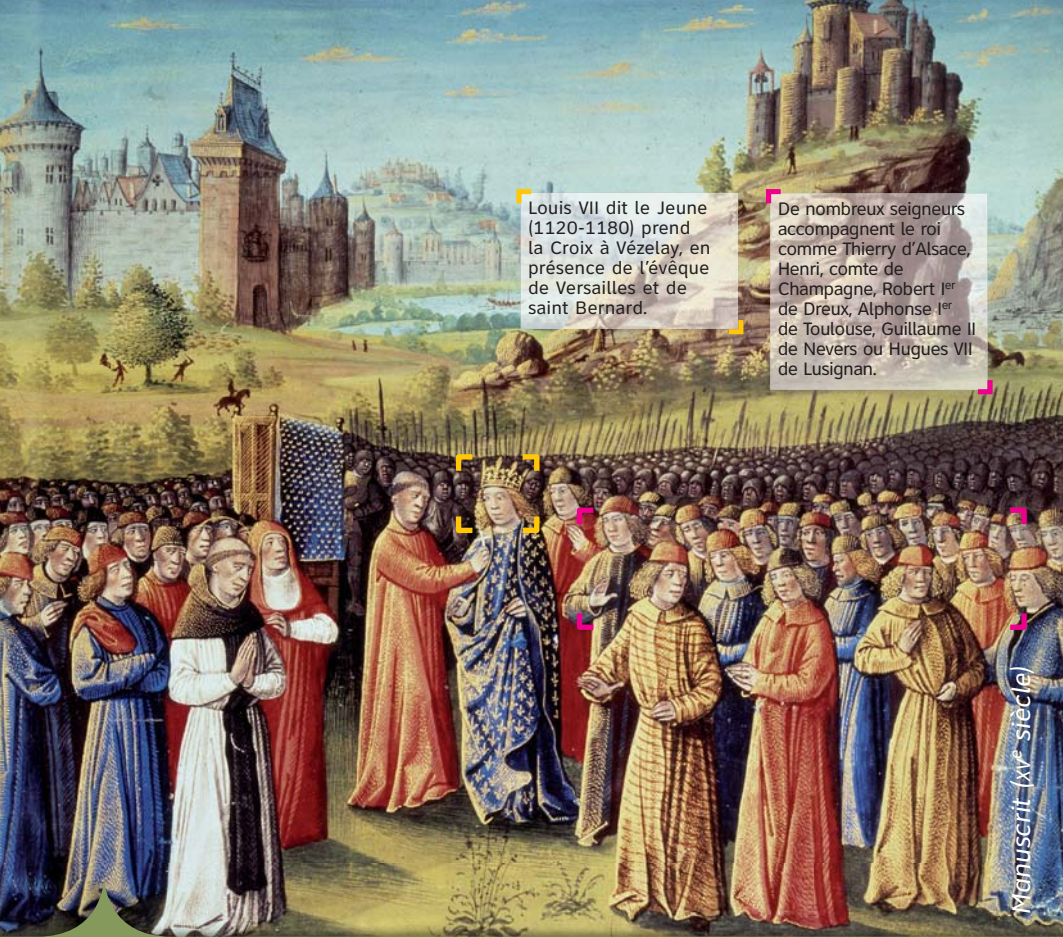 Louis VII dit le Jeune
(1120-1180) prend
la Croix à Vézelay, en
présence de l'évêque
de Versailles et de
saint Bernard.
De nombreux seigneurs
accompagnent le roi
comme Thierry d'Alsace,
Henri, comte de
Champagne, Robert Iᵉʳ
de Dreux, Alphonse Iᵉʳ
de Toulouse, Guillaume II
de Nevers ou Hugues VII
de Lusignan.
Manuscrit (XVᵉ siècle)